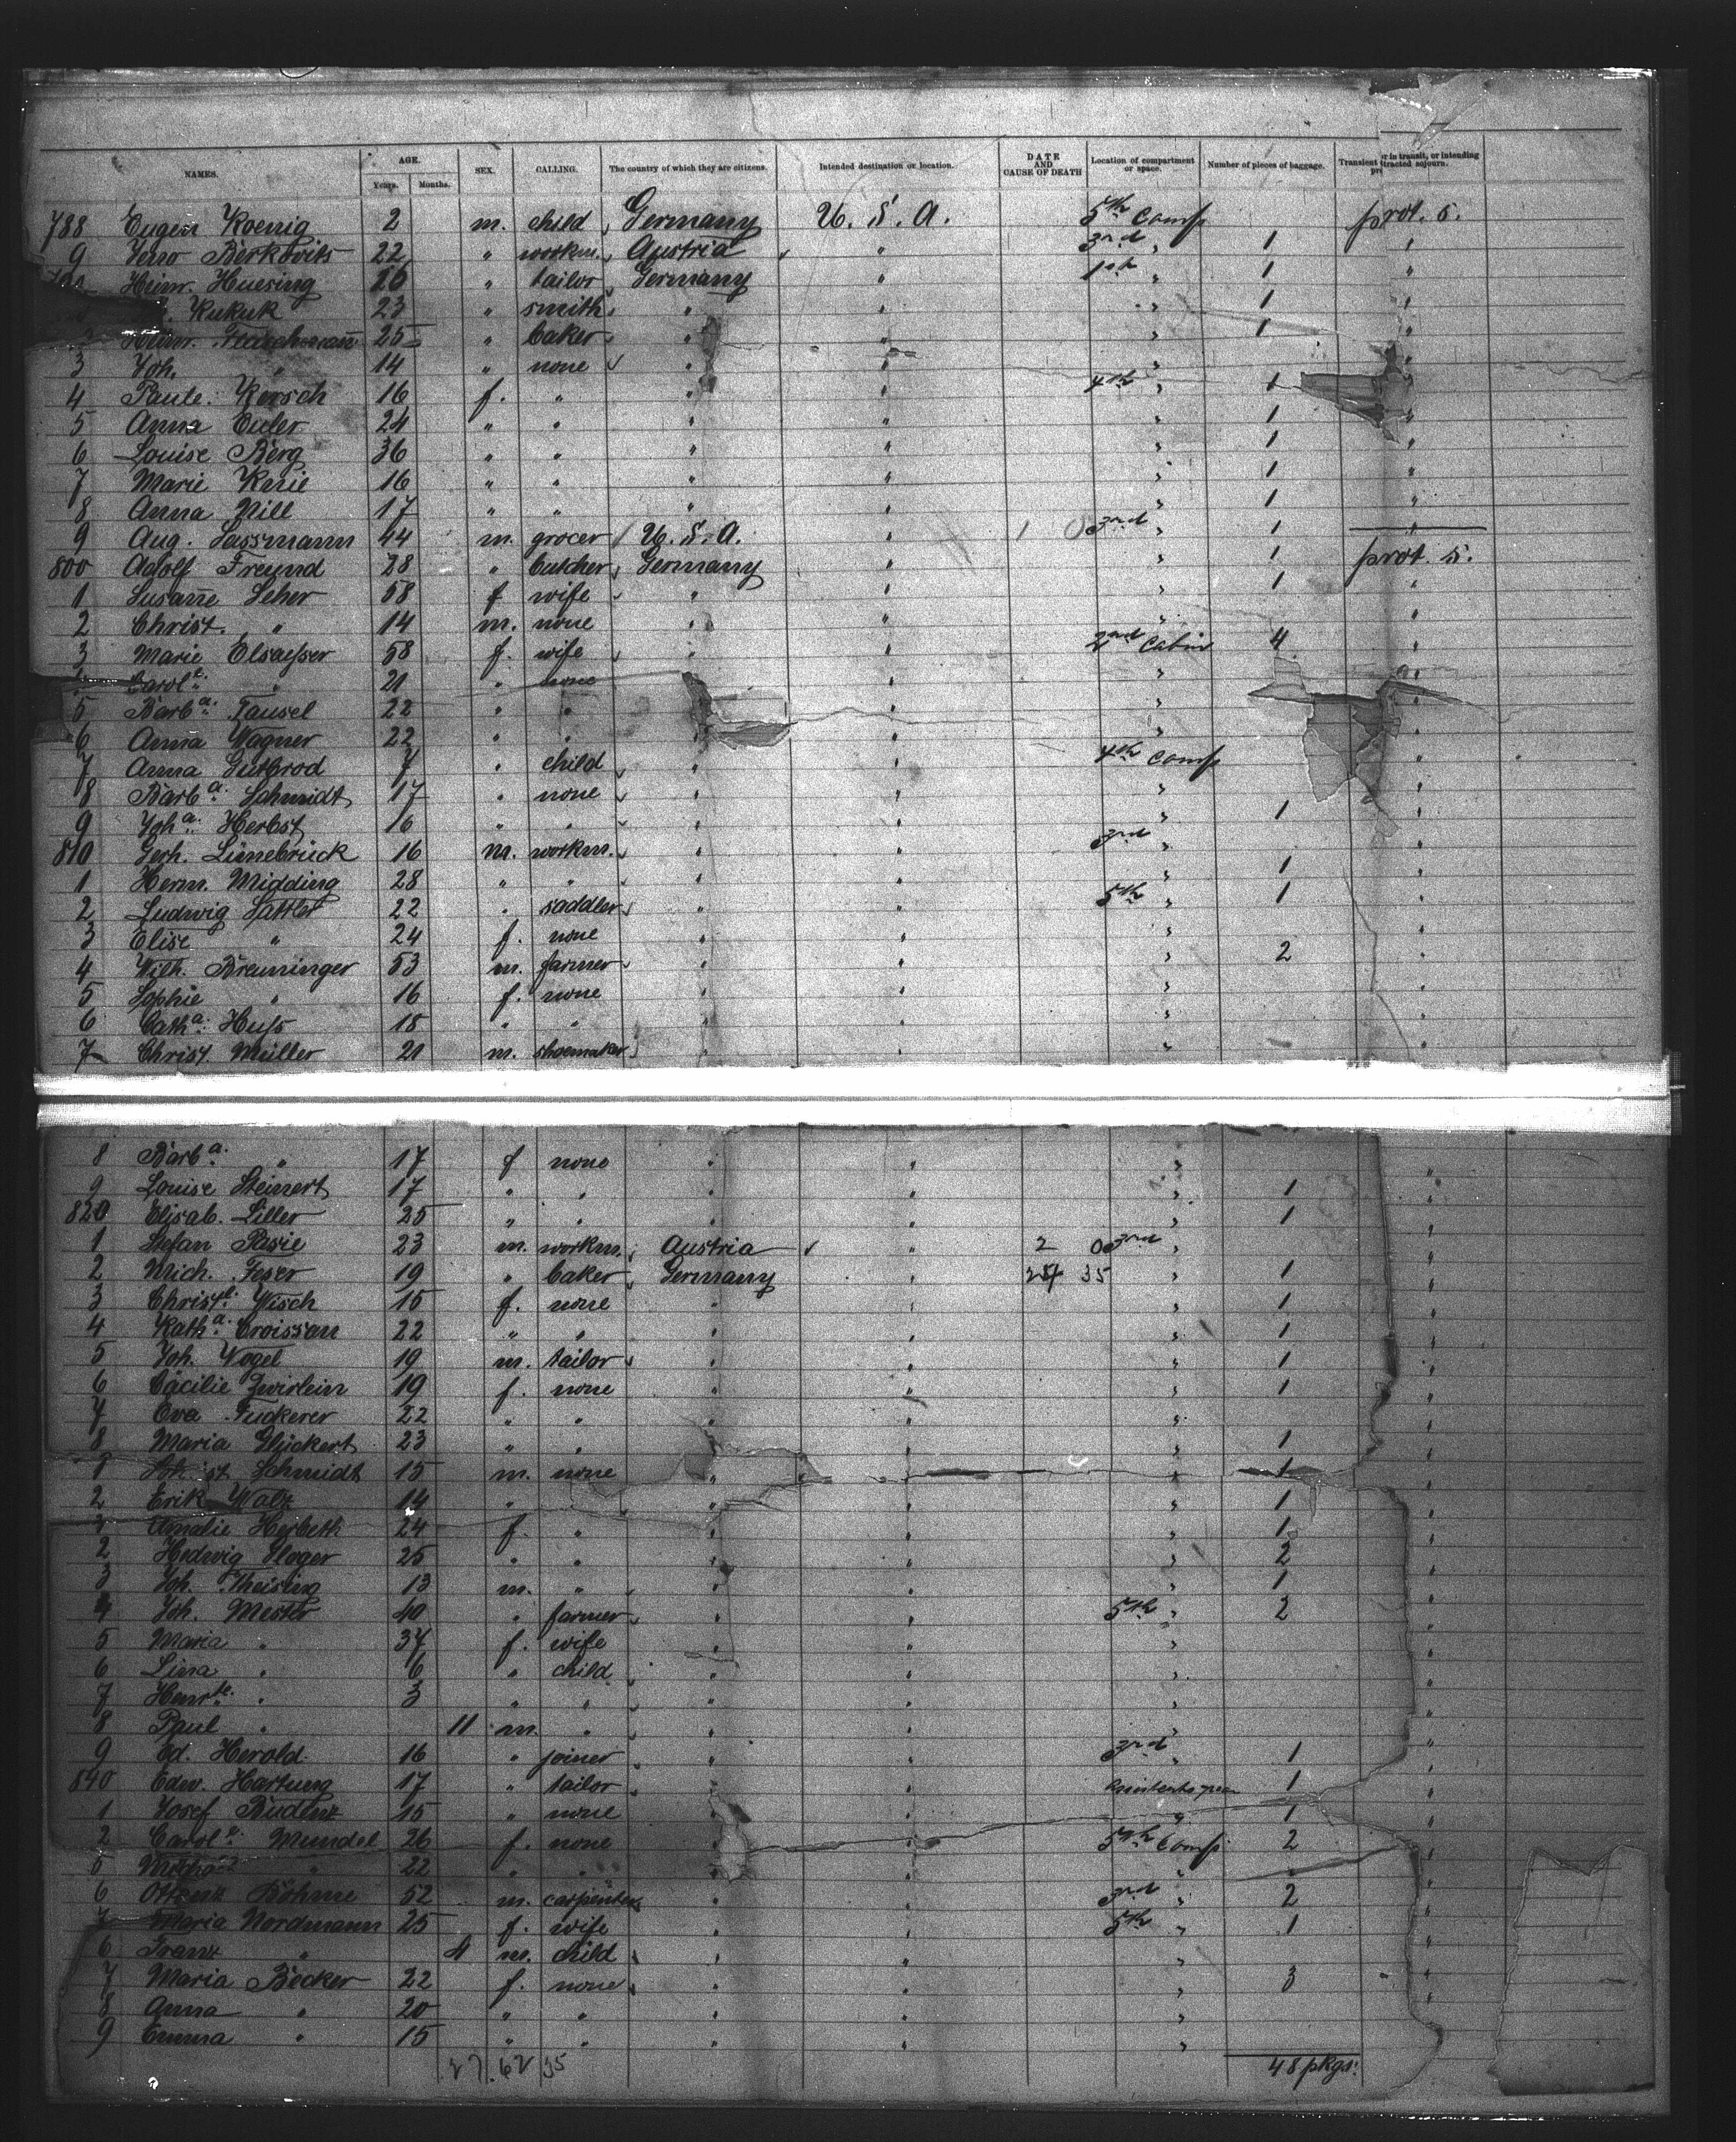 NAMES. AGE. Years. Months. SEX. CALLING. The country of which they are citizens. Intended destination or location. DATE AND CAUSE OF DEATH Location of compartment or space. Number of pieces of baggage. Transient or in transit, or intending protracted sojourn.
788 Eugen Koenig 2 m. child Germany U. S. A. 5th Comp prot. s.
9 Berkovits 22 " workm. Austria " 3rd " 1 "
Heinr. Huesing " tailor Germany " 1st " 1 "
Kukuk 23 " smith " " " 1 "
2 Heinr. 25 " baker " " " 1 "
3 Joh. " 14 " none " " " "
4 Paule. Kersch 16 f. " " " 4th " 1 "
5 Anna Euler 24 " " " " " 1 "
6 Louise Berg 36 " " " " " 1 "
7 Marie Knie 16 " " " " " 1 "
8 Anna Nill 17 " " " " " 1 "
9 Aug. Sassmann 44 m. grocer U. S. A. " 1 0 3rd " 1 "
800 Adolf Freund 28 " butcher Germany " " 1 prot. s.
1 Susanne Seher 58 f wife " " " 1 "
2 Christ. " 14 m. none " " " "
3 Marie Elsaesser 58 f. wife " " 2nd Cabin 4 "
Carole. " 21 " none " " " "
5 Barba. Tausel 22 " " " " " "
6 Anna Wagner 22 " " " " " "
7 Anna Gutbrod 7 " child " " 4th Comp "
8 Barba. Schmidt 17 " none " " " "
9 Joha. Herbst 16 " " " " " 1 "
810 Gerh. Lünebrück 16 m. workm. " " 3rd " "
1 Herm. Midding 28 " " " " " 1 "
2 Ludwig Sattler 22 " saddler " " 5th " 1 "
3 Elise " 24 f. none " " " "
4 Wilh. Breuninger 53 m. farmer " " " 2 "
5 Sophie " 16 f. none " " " "
6 Catha. Huss 18 " " " " " "
7 Christ. Müller 21 m. shoemaker " " " "
8 Barba. " 17 f none " " " "
9 Louise Steinert 17 " " " " " 1 "
820 Elisab. Liller 25 " " " " " 1 "
1 Stefan Pasie 23 m. workm. Austria " 2 0 3rd " "
2 Mich. Feser 19 " baker Germany " 35 " 1 "
3 Christe. Wisch 15 f. none " " " 1 "
4 Katha. Croissan 22 " " " " " 1 "
5 Joh. Vogel 19 m. tailor " " " 1 "
6 Cäcilie Zwirlein 19 f. none " " " 1 "
7 Eva Fuckerer 22 " " " " " "
8 Maria Glückert 23 " " " " " 1 "
Schmidt 15 m. none " " " 1 "
2 Erik Walz 14 " " " " " 1 "
1 Amalie Herbeth 24 f. " " " " 1 "
2 Hedwig Hager 25 " " " " " 2 "
3 Joh. Theising 13 m. " " " " 1 "
4 Joh. Mester 40 " farmer " " 5th " 2 "
5 Maria " 37 f. wife " " " "
6 Lina " 6 " child " " " "
7 Henrte. " 3 " " " " " "
8 Paul " 11 m. " " " " "
9 Ed. Herold 16 " joiner " " 3rd " 1 "
840 Edw. Hartung 17 " tailor " " 1 "
1 Josef 15 " none " " " 1 "
2 Carole. Mundel 26 f. none " " 5th Comp 2 "
" 22 " " " " " "
6 Böhme 52 m. carpenter " " 3rd " 2 "
Maria Nordmann 25 f. wife " " 5th " 1 "
6 Franz " 4 m. child " " " "
7 Maria Böcker 22 f. none " " " 3 "
8 Anna " 20 " " " " " "
9 Emma " 15 " " " " " "
27.62 35 48 pkgs.